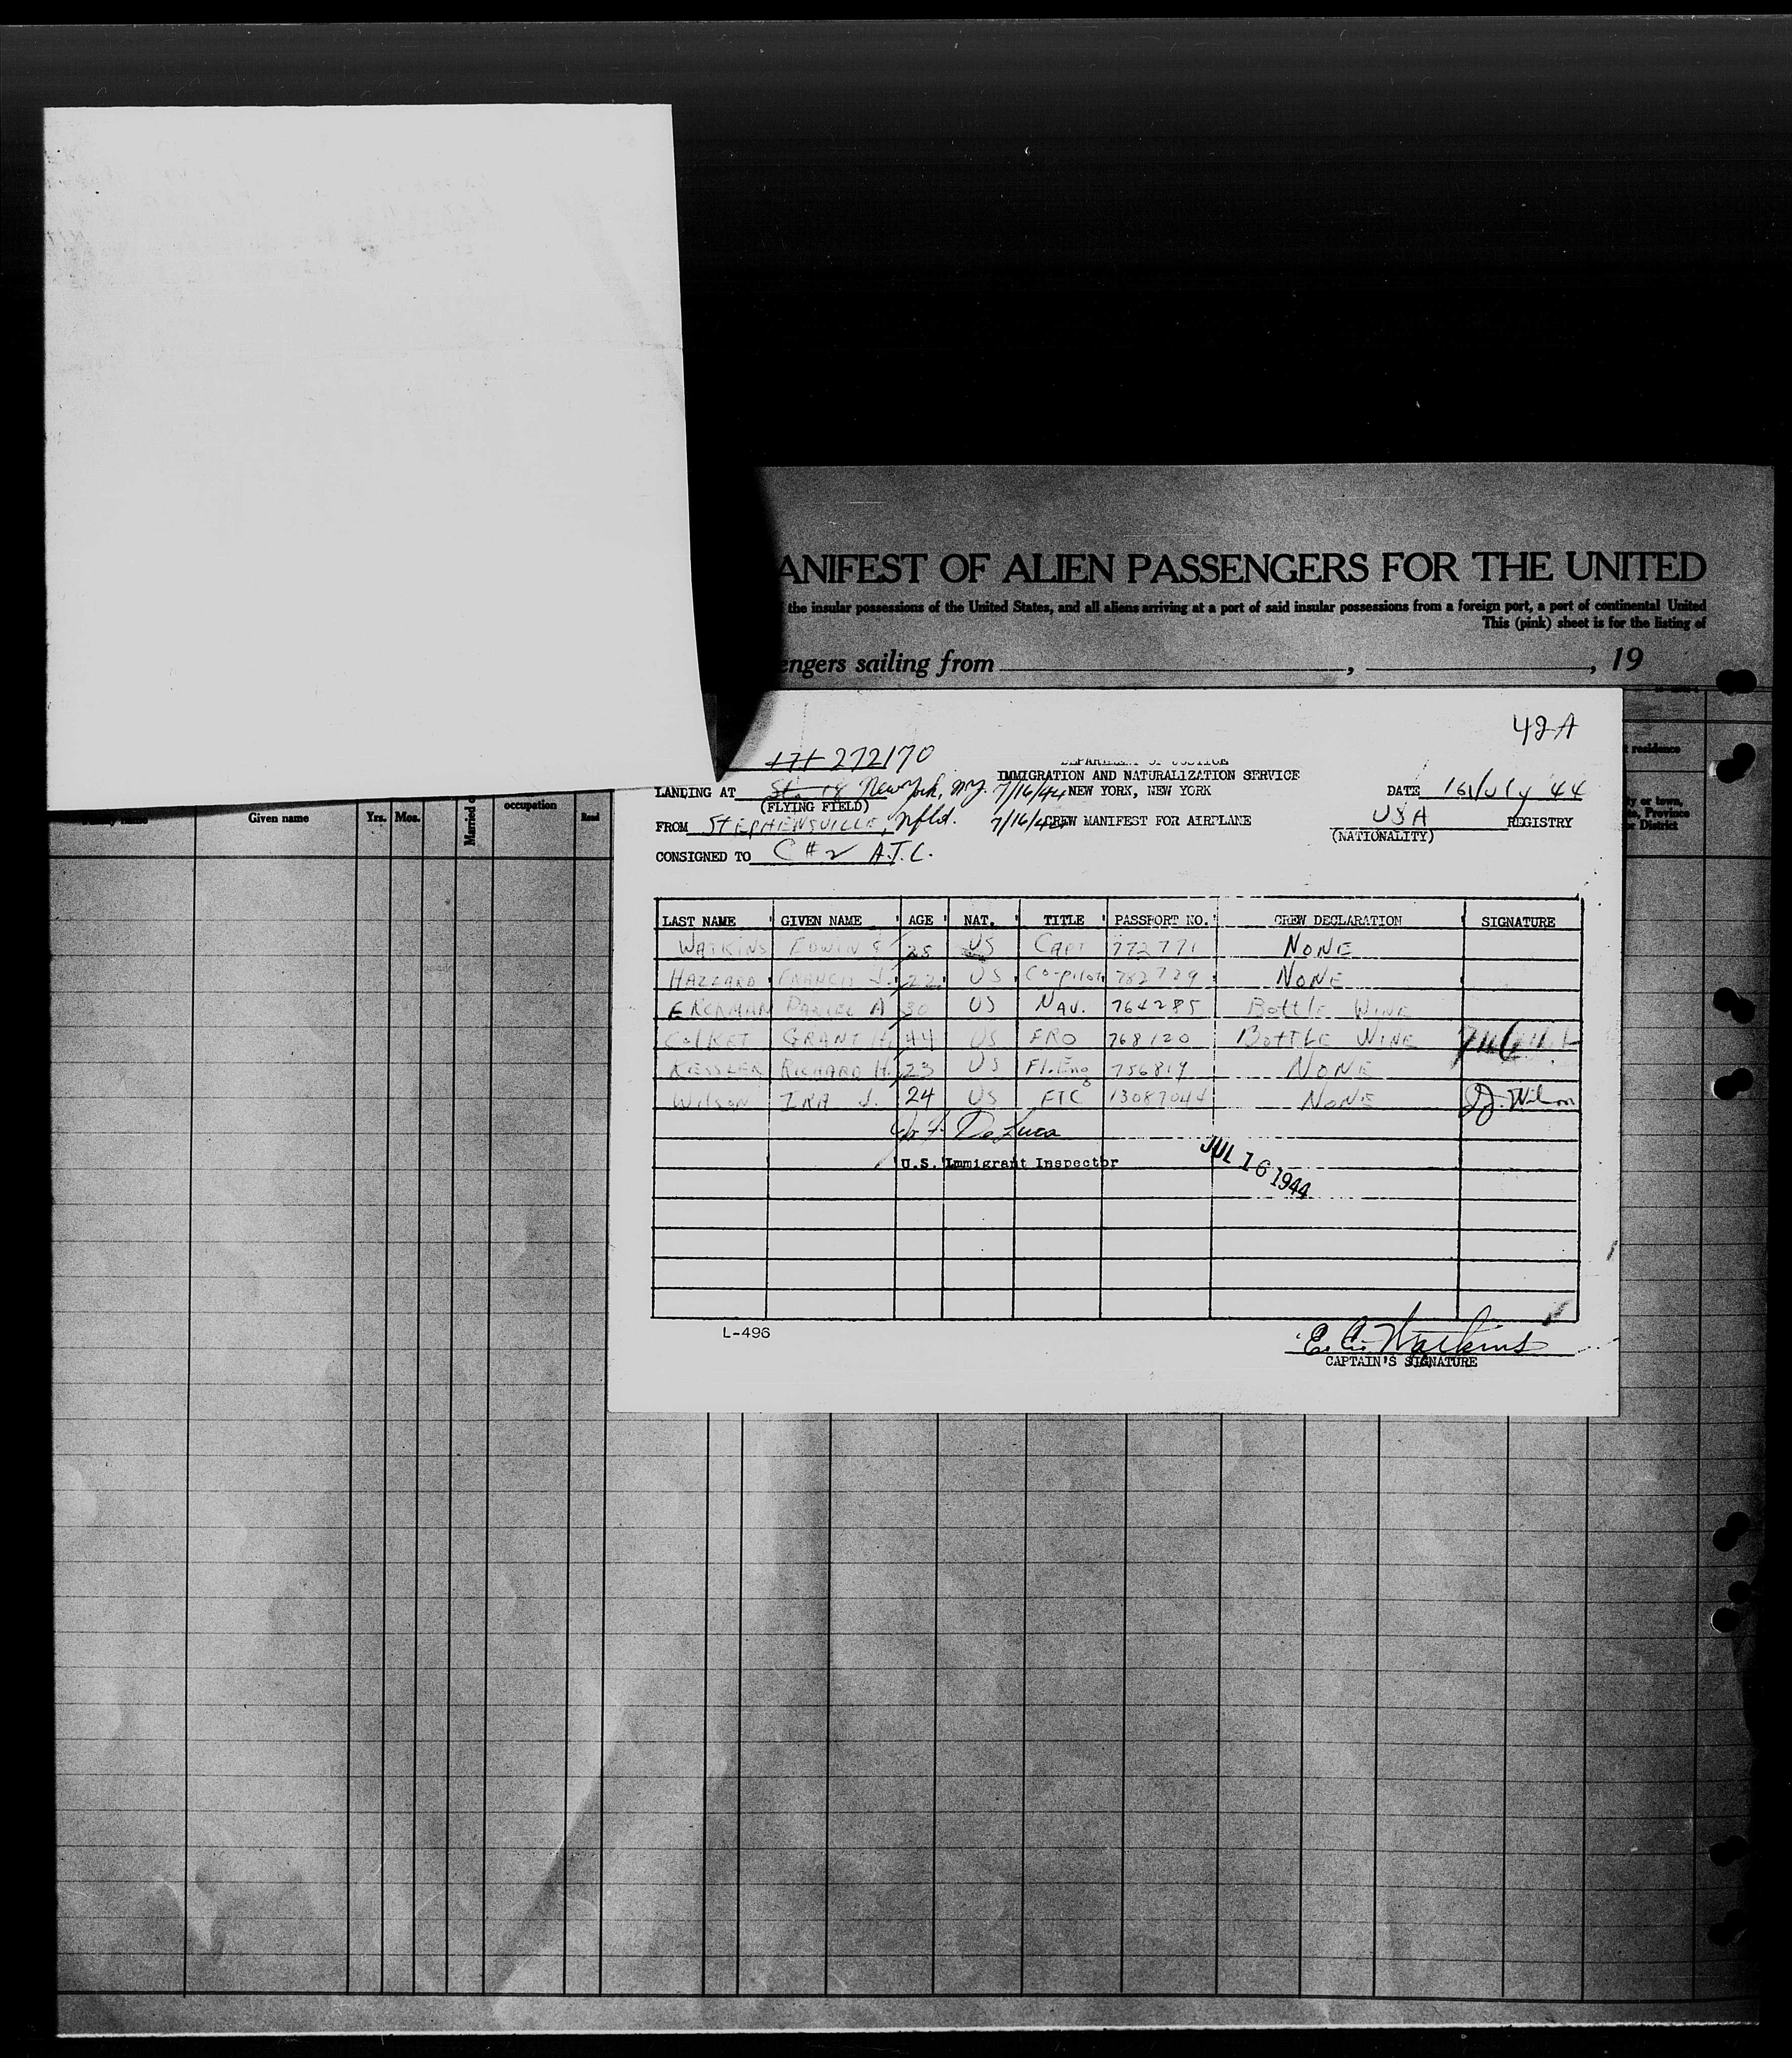 ANIFEST OF ALIEN PASSENGERS FOR THE UNITED
the insular possessions of the United States, and all aliens arriving at a port of said insular possessions from a foreign port, a port of continental United
This (pink) sheet is for the listing of
engers sailing from , , 19
42A
272170
DEPARTMENT OF JUSTICE
IMMIGRATION AND NATURALIZATION SERVICE
LANDING AT New York, N.Y. 7/16/44 NEW YORK, NEW YORK DATE 16/July 44
(FLYING FIELD)
FROM STEPHENSVILLE, Nfld. 7/16/44 CREW MANIFEST FOR AIRPLANE USA REGISTRY
(NATIONALITY)
CONSIGNED TO C#2 A.T.C.
residence
or town,
Province
District
Given name Yrs. Mos. Married occupation Read
LAST NAME GIVEN NAME AGE NAT. TITLE PASSPORT NO. CREW DECLARATION SIGNATURE
WATKINS EDWIN 25 US CAPT 772771 NONE
HAZZARD FRANCIS J. 22 US Co-pilot 782729 NONE
DANIEL A 30 US NAV. 764285 Bottle Wine
COLKET GRANT H. 44 US FRO 768120 BOTTLE WINE
KESSLER RICHARD H. 23 US Fl. Eng 756819 NONE
WILSON IRA J. 24 US FTC 13087044 NONE I J. Wilson
De Luca
U.S. Immigrant Inspector JUL 16 1944
L-496
E. C. Watkins
CAPTAIN'S SIGNATURE